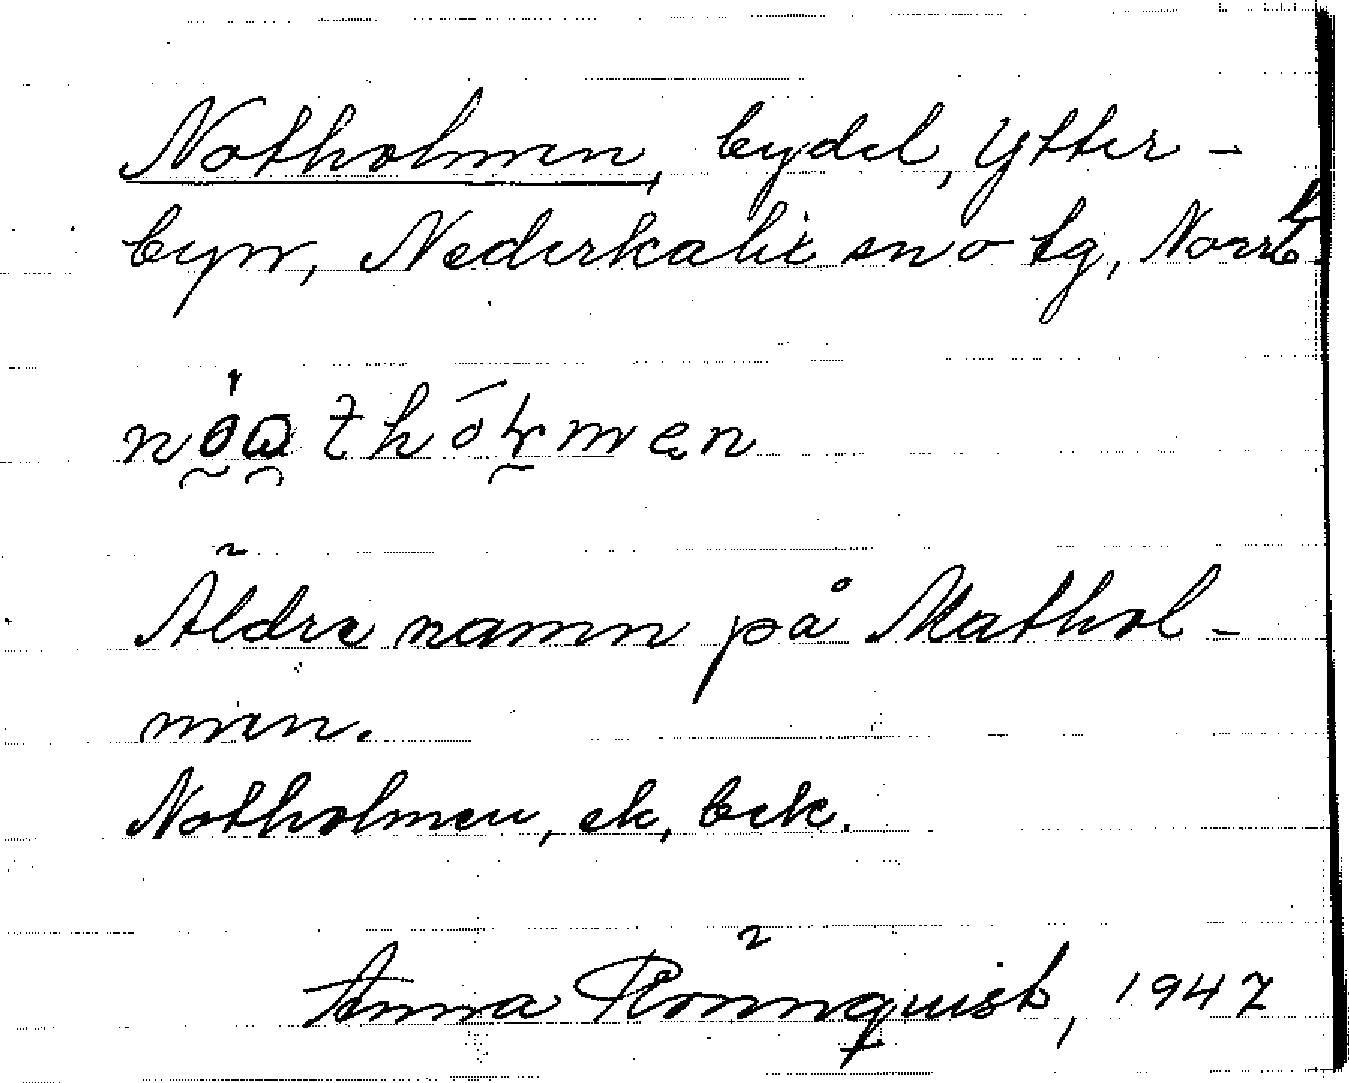 Notholmen, bydel, Ytter-
byn, Nederkalix sn o tg, Norrb
Äldre namn på Mathol-
men.
Notholmen, ek, bek.
Anna Rönnquist, 1947